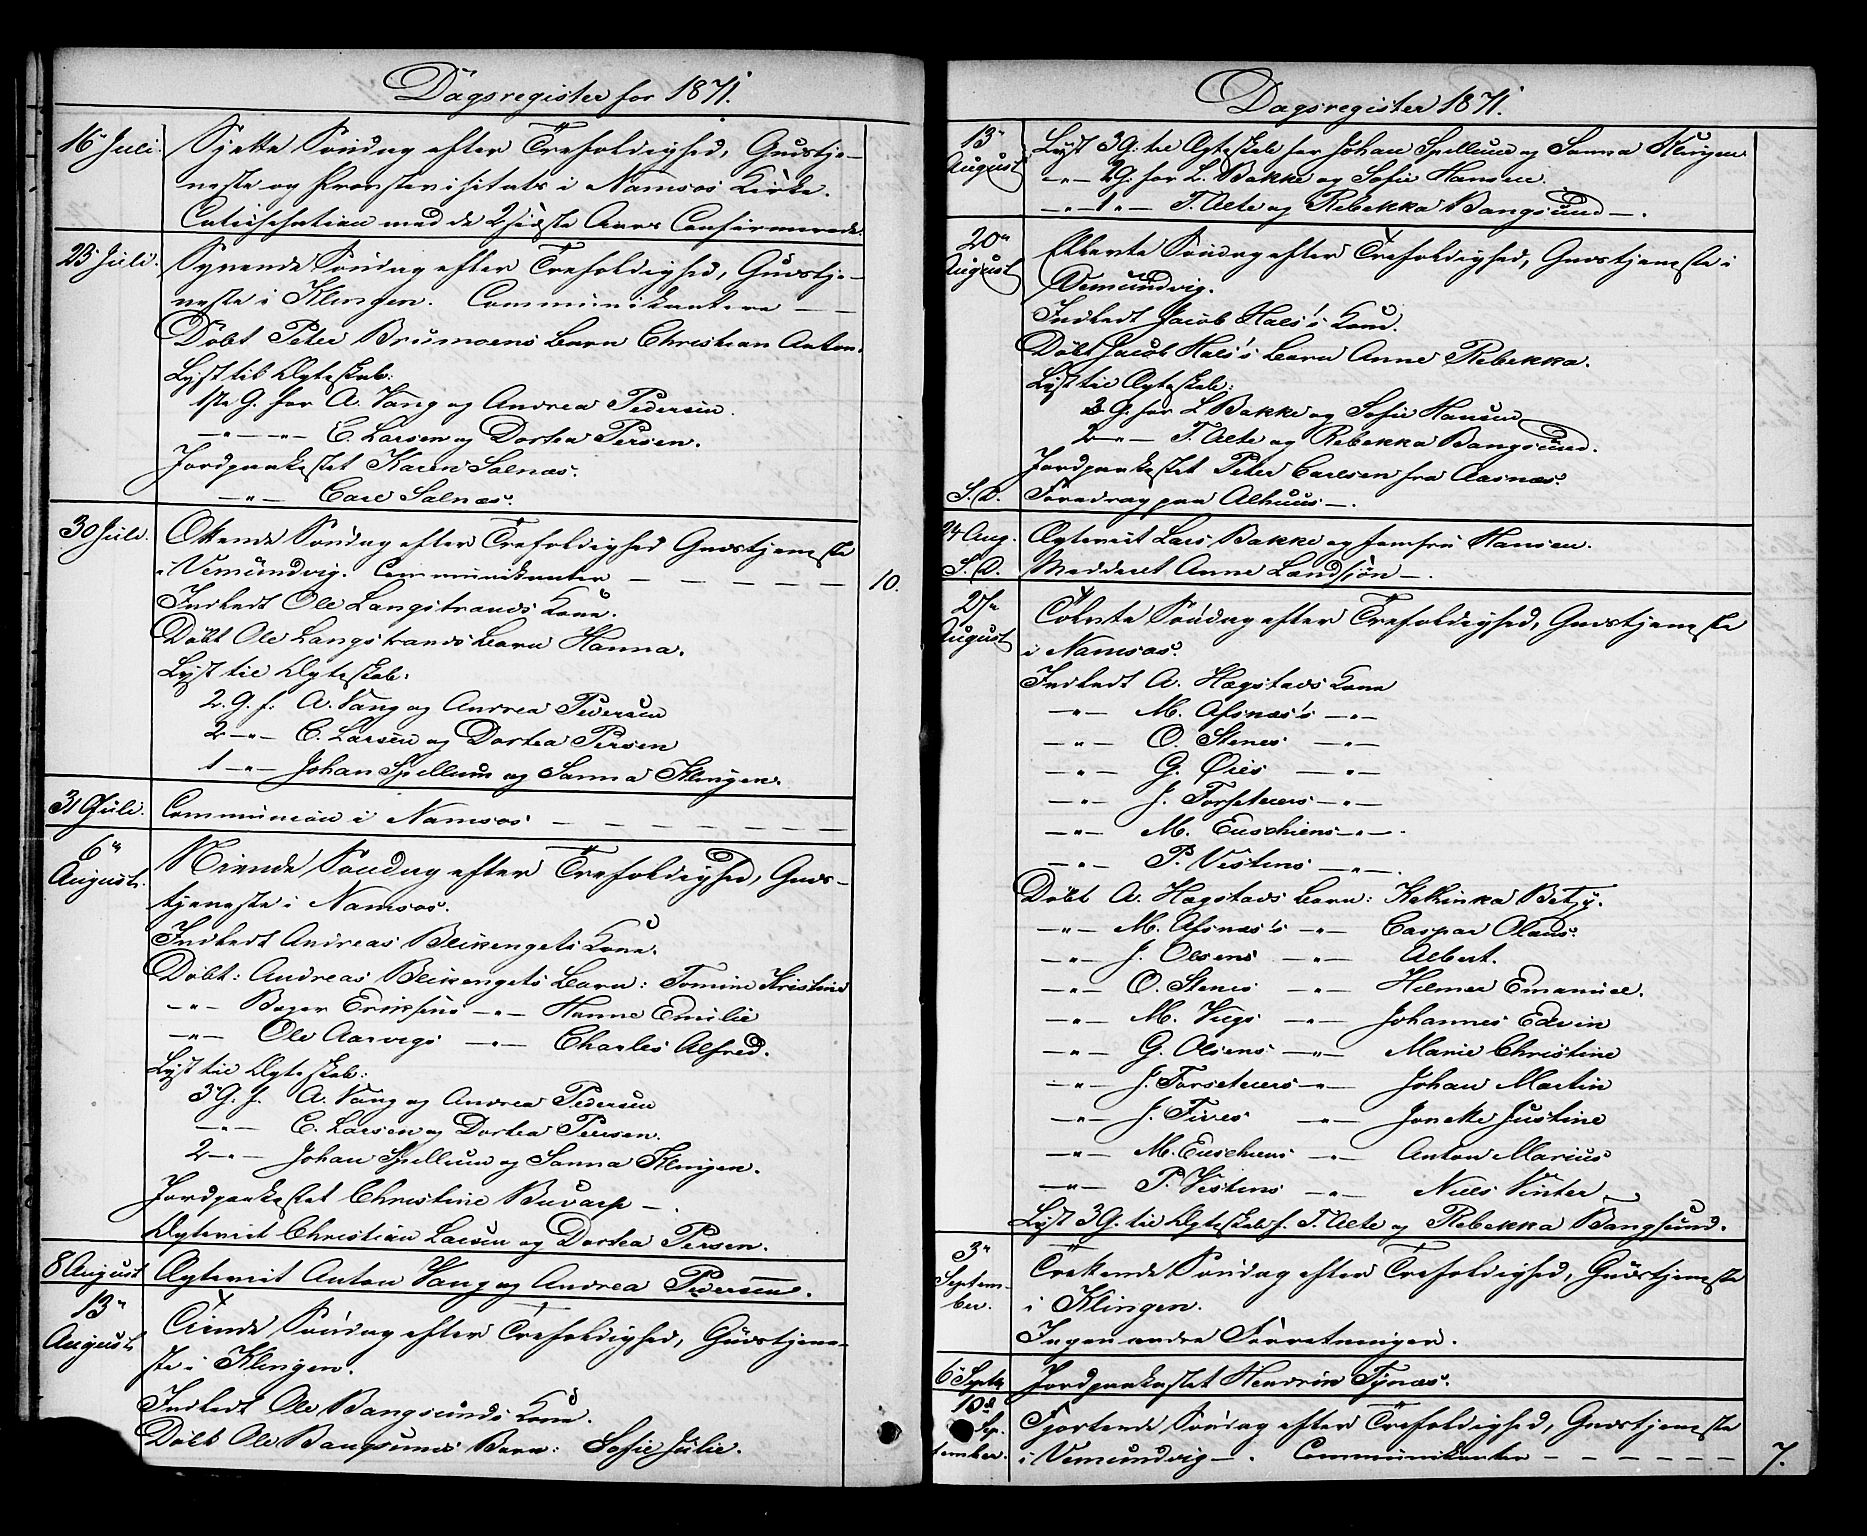 Dagsregister for 1871.
16 Juli. Sjette Søndag efter Trefoldighed, Gudstje-
neste og Provstevisitats i Namsos Kirke.
Catechisation med de 2 sidste Aars Confirmerede.
23 Juli. Syvende Søndag efter Trefoldighed, Gudstje-
neste i Klingen. Communikantere — —
Døbt Peter Brumoens Barn Christian Anton.
Lyst til Ægteskab:
1ste G. for A. Vang og Andrea Pedersen.
—"— —"— C. Larsen og Dortea Persen.
Jordpaakastet Karen Salnæs.
—"— Carl Salnæs.
30 Juli. Ottende Søndag efter Trefoldighed Gudstjeneste
i Vemundvig. Communikanter — — — — — 10.
Indledt Ole Langstrands Kone.
Døbt Ole Langstrands Barn Hanna.
Lyst til Ægteskab:
2 G. f. A. Vang og Andrea Pedersen
2 —"— C. Larsen og Dortea Persen
1 —"— Johan Spillum og Sanna Klingen.
31 Juli. Communion i Namsos — — — — — —
6" August. Niende Søndag efter Trefoldighed, Guds-
tjeneste i Namsos.
Indledt Andreas Blikengets Kone.
Døbt: Andreas Blikengets Barn: Tomine Kristine
—"— Bager Eriksens —"— Hanne Emilie
—"— Ole Aarvigs —"— Charles Alfred.
Lyst til Ægteskab:
3 G. f. A. Vang og Andrea Pedersen
—"— C. Larsen og Dortea Persen.
2 —"— Johan Spillum og Sanna Klingen.
Jordpaakastet Christine Buvarp —.
Ægteviet Christian Larsen og Dortea Persen.
8 August Ægteviet Anton Vang og Andrea Pedersen.
13" August. Tiende Søndag efter Trefoldighed, Gudstjene-
ste i Klingen.
Indledt Ole Bangsunds Kone.
Døbt Ole Bangsunds Barn: Sofie Julie.
Dagsregister 1871.
13" August Lyst 3 G. til Ægteskab for Johan Spillum og Sanna Klingen
—"— 2 G. for L. Bakke og Sofie Hansen.
—"— 1 "— T. Alte og Rebekka Bangsund —.
20" August Ellevte Søndag efter Trefoldighed, Gudstjeneste i
Vemundvig.
Indledt Jacob Hals's Kone.
Døbt Jacob Hals's Barn Anne Rebekka.
Lyst til Ægteskab:
3 G. for L. Bakke og Sofie Hansen
2 —"— T. Alte og Rebekka Bangsund.
Jordpaakastet Peter Carlsen fra Aasnæs.
S. D. Foredrag paa Alhuus —.
24 Aug. Ægteviet Lars Bakke og Jomfru Hansen.
S. D. Medderet Anne Landsjøn —.
27" August Tolvte Søndag efter Trefoldighed, Gudstjeneste
i Namsos.
Indledt A. Hægstads Kone
—"— M. Afsnæs's —"—
—"— O. Stenes —"—
—"— G. Øies —"—
—"— J. Forseters —"—
—"— M. Euschens —"—.
—"— P. Vistens —"—.
Døbt A. Hægstads Barn: Kathinka Betzy.
—"— M. Afsnæs's —"— Caspar Olaus.
—"— J. Olsens —"— Albert.
—"— O. Stenes —"— Hilmar Emanuel.
—"— M. Viegs —"— Johannes Edvin
—"— G. Olsens —"— Marie Christine
—"— J. Forseters —"— Johan Martin
—"— J. Fires —"— Joneke Justine
—"— M. Euschens —"— Anton Marius
—"— P. Vistens —"— Niels Vinter
Lyst 3 G. til Ægteskab f. T. Alte og Rebekka Bangsund.
3" September. Trettende Søndag efter Trefoldighed, Gudstjeneste
i Klingen.
Ingen andre Forretninger.
6 Septb. Jordpaakastet Hendrik Tynæs.
10d September. Fjortende Søndag efter Trefoldighed, Gudstjeneste
i Vemundvig —. Communikanter — — — — — — 7.